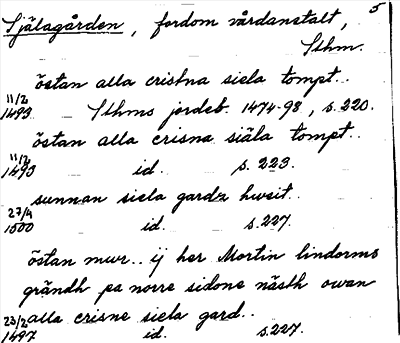 Själagården, fordom vårdanstalt, 5
Sthm.
östan alla cristna siela tompt..
11/2 1493 Sthms jordeb. 1474-98, s.220.
östan alla crisna siäla tompt..
11/2 1493 id. s.223.
sunnan siela gardz hwsit..
27/4 1500 id. s.227.
östan mwr.. ij her Mortin lindorms
grändh pa norre sidone nästh owan
alla crisne siela gard..
23/2 1497 id. s.227.